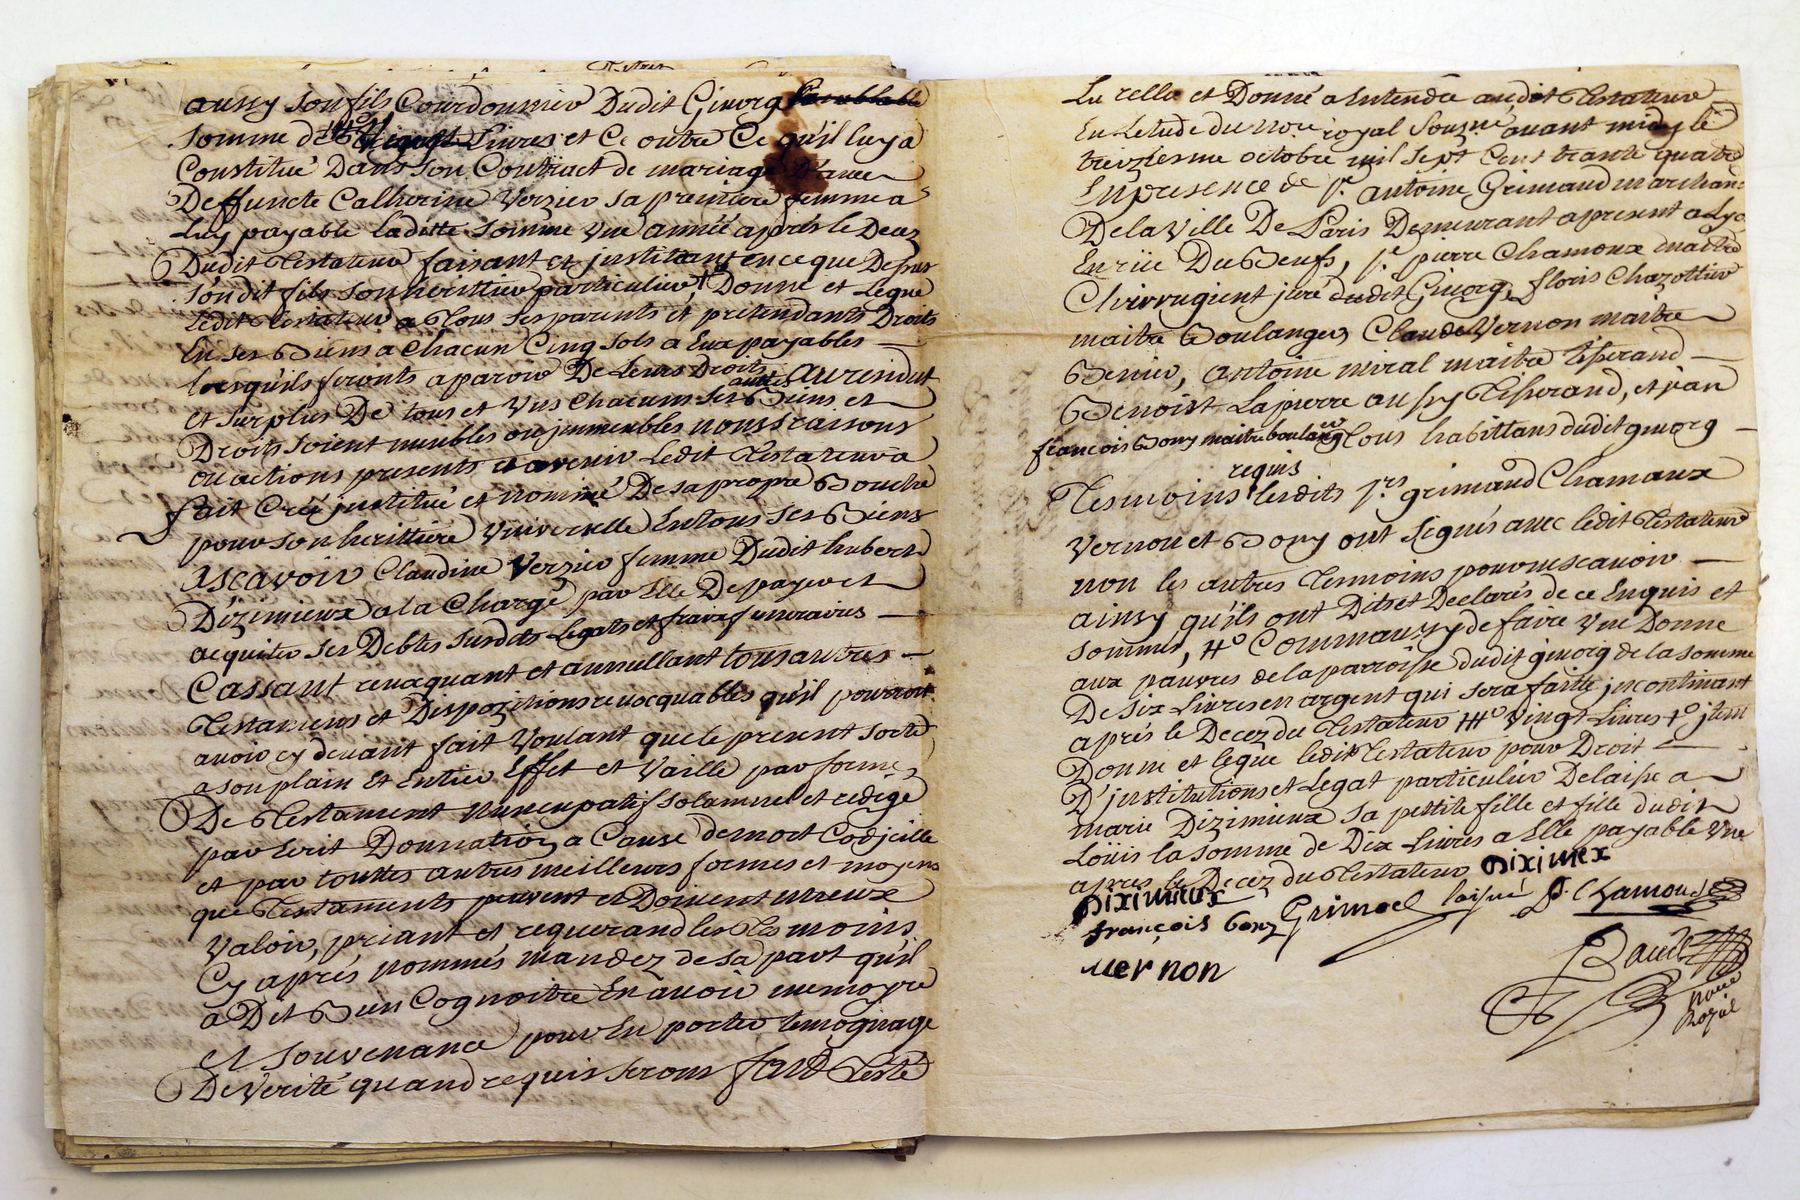 aussy son fils Courdonnier Dudit Givorg Semblable
somme de Livres et Ce outre Ce qu'il luy a
Constitué Dans son Contract de mariage D'avec
Deffuncte Catherine Verzier sa premiere femme a
Luy payable laditte somme Une année aprés le Decez
Dudit Testateur faisant et jnstituant en ce que Dessus
sondit fils son heritier particulier, Donne et Legue
Ledit Testateur a Tous ses parents et pretendants Droits
En ses Biens a Chacun Cinq sols a Eux payables
lorsqu'ils feronts aparoir De Leurs Droits
autres au residut
et surplus De tous et Uns Chacuns ses Biens et
Droits soient meubles ou jmmeubles noms raisons
ou actions presents et avenir Ledit Testateur a
fait Créé jnstitué et nommé De sa propre Bouche
pour son heritiere Universelle En tous ses Biens
ascavoir Claudine Verzier femme Dudit hubert
Dizimieux a la Charge par Elle De payer et
acquiter ses Debtes susdits Legats et fraix funeraires
Cassant revoquant et annullant tous autres
Testaments et Dispozitions revocquables qu'il pourroit
avoir cy devant fait Voulant que le present sorte
a son plain Et Entier Effet et Vaille par forme
De Testament Nuncupatif solamnel et redigé
par Ecrit Donnation a Cause de mort Codicille
et par touttes autres meilleures formes et moyens
que Testaments peuvent et Doivent mieux
Valoir, priant et requerand les Tesmoins
Cy aprés nommés mandez de sa part qu'il
a Dit Bien Cognoitre En avoir memoyre
et souvenance pour En porter temognage
De Verité quand requis seront fait Testé
Lu rellu et Donné a Entendre audit Testateur
En Letude du no.re royal souz.né avant midy le
treiziesme octobre mil sept Cent trante quatre
En presence de s.r antoine Grimaud marchand
De la Ville De Paris Demeurant a present a Lyo
En rüe Du Boeufs, s.r pierre Chamoux maitre
Chirrugient juré dudit Givorg, floris Chazottier
maitre Boulanger, Claude Vernon maitre
Benier, antoine miral maitre tisserand
Benoist Lapierre aussy Tisserand, et jean
françois Bony maitre boulang.er Tous habittans dudit givorg
requis
Tesmoins lesdits s.rs grimaud Chamaux
Vernon et Bony ont signés avec ledit Testateur
non les autres Tesmoins pour ne scavoir
ainsy qu'ils ont Dit et Declarés de ce Enquis et
sommés, #o Comm aussy de faire Une Donne
aux pauvres de la parroisse dudit givorg de la somme
De six Livres en argent qui sera faitte jncontinant
aprés le Decez du Testateur ##o Vingt Livres +o jtem
Donne et legue ledit Testateur pour Droit
D'jnstitutions et Legat particulier Delaisse a
marie Dizimieux sa pettite fille et fille dudit
Loüis la somme de Dix Livres a Elle payable Une
aprés le Decez du Testateur Diximex
Diximeux
françois bony Grimod laisné P. Chamoux
vernon
no.re
Royal